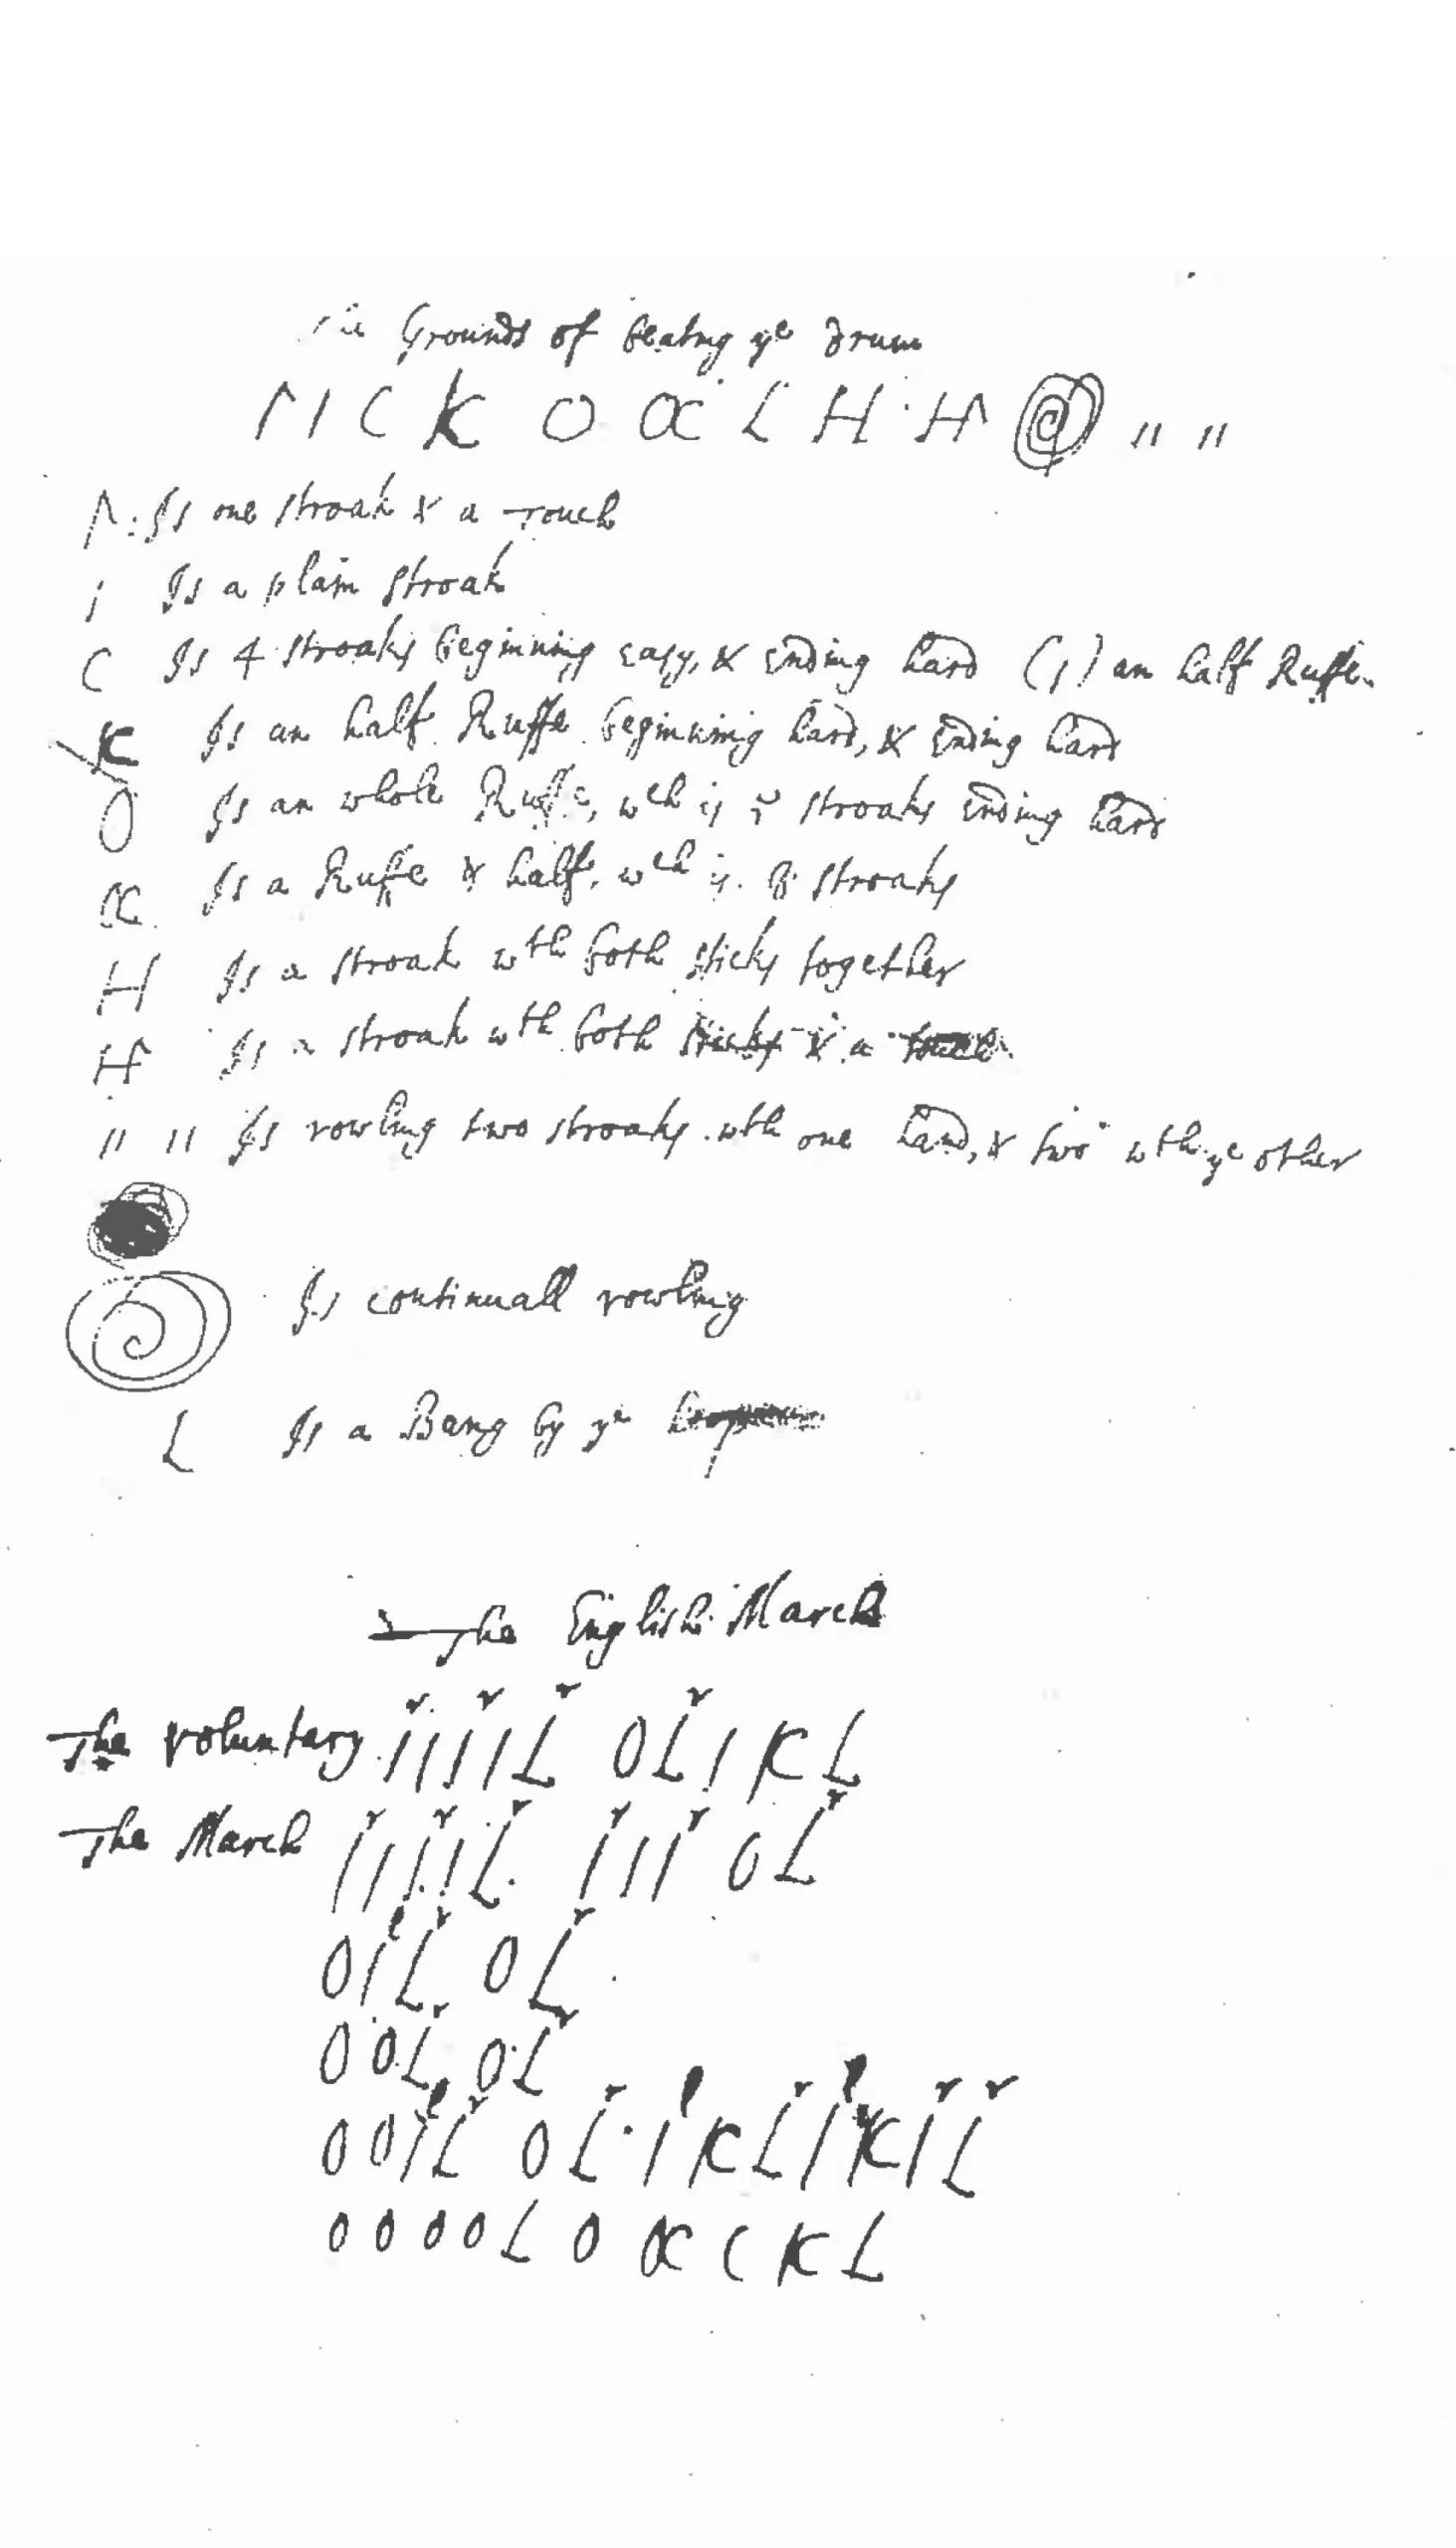 The Grounds of beating ye drum
Λ I C K O α L H H @ 〃 〃
Λ: Is one stroak & a Touch
i Is a plain stroak
C Is 4 stroaks beginning easy, & ending hard (s) an half Ruffe.
K Is an half Ruffe beginning hard, & ending hard
O Is an whole Ruffe, wch is stroaks ending hard
α Is a Ruffe & half, wch is. 8 stroaks
H Is a stroak wth both sticks together
H Is a stroak wth both sticks & a touch
〃 〃 Is rowling two stroaks wth one hand, & two wth ye other
Is continuall rowling
L Is a Bang by ye
The English March
The voluntary I I I I L O L I K L
The March I I I I L. I I I O L
O I L O L
O O L O L
O O I L O L I K L I K I L
O O O O L O α C K L